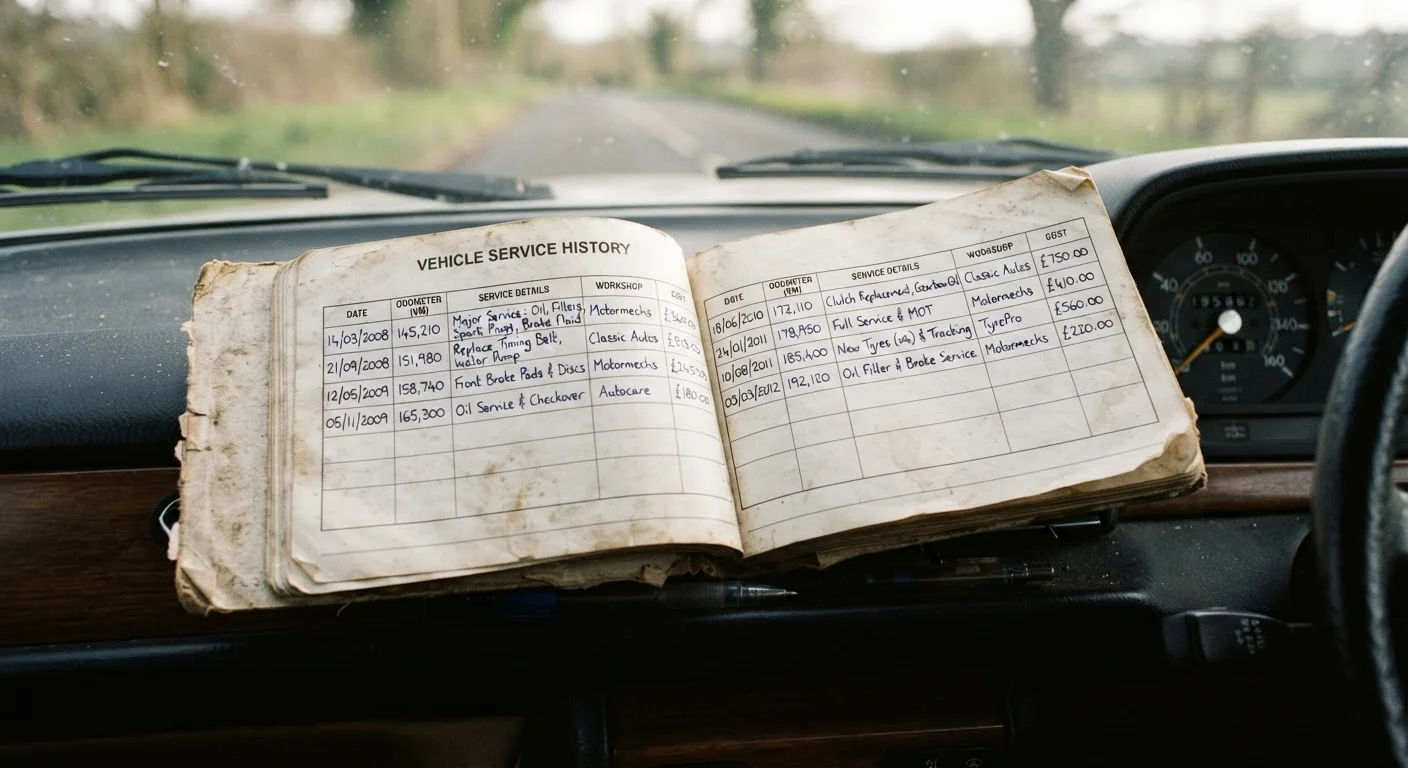 VEHICLE SERVICE HISTORY
DATE ODOMETER (VM) SERVICE DETAILS WORKSHOP
14/03/2008 145,210 Major Service: Oil, Fillers, Motormechs
Spark Prugs, Brake Fluid
21/09/2008 151,980 Replace Timing Belt, Classic Autes
water Pump
12/05/2009 158,740 Front Brake Pads & Discs Motormechs
05/11/2009 165,300 Oil Service & Checkover Autocare £180.00
DATE ODOMETER (RM) SERVICE DETAILS WODASUGP GGST
18/06/2010 172,110 Clutch Replacement, Classic Autes £750.00
24/01/2011 178,950 Full Service & MOT Motormechs £410.00
10/08/2011 185,400 New Tyres & Tracking TyrePro £560.00
03/03/2012 192,180 Oil Filler & Brake Service Motormechs
40 60 80 100 120 140 160
km
km